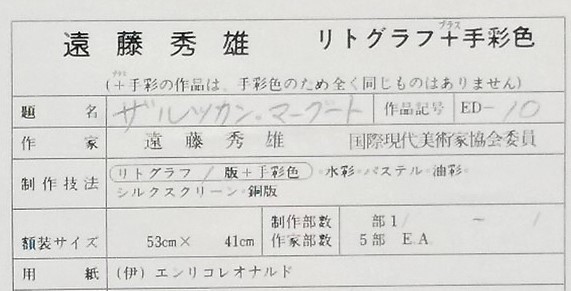 遠藤秀雄 リトグラフ＋手彩色
プラス
(＋手彩の作品は、手彩色のため全く同じものはありません)
プラス
題名 ザルツカンマーグート 作品記号 ED-10
作家 遠藤秀雄 国際現代美術家協会委員
制作技法 リトグラフ / 版＋手彩色・水彩・パステル・油彩・
シルクスクリーン・銅版
額装サイズ 53cm× 41cm 制作部数 部1/ ～ /
作家部数 5部 E.A.
用紙 (伊) エンリコレオナルド